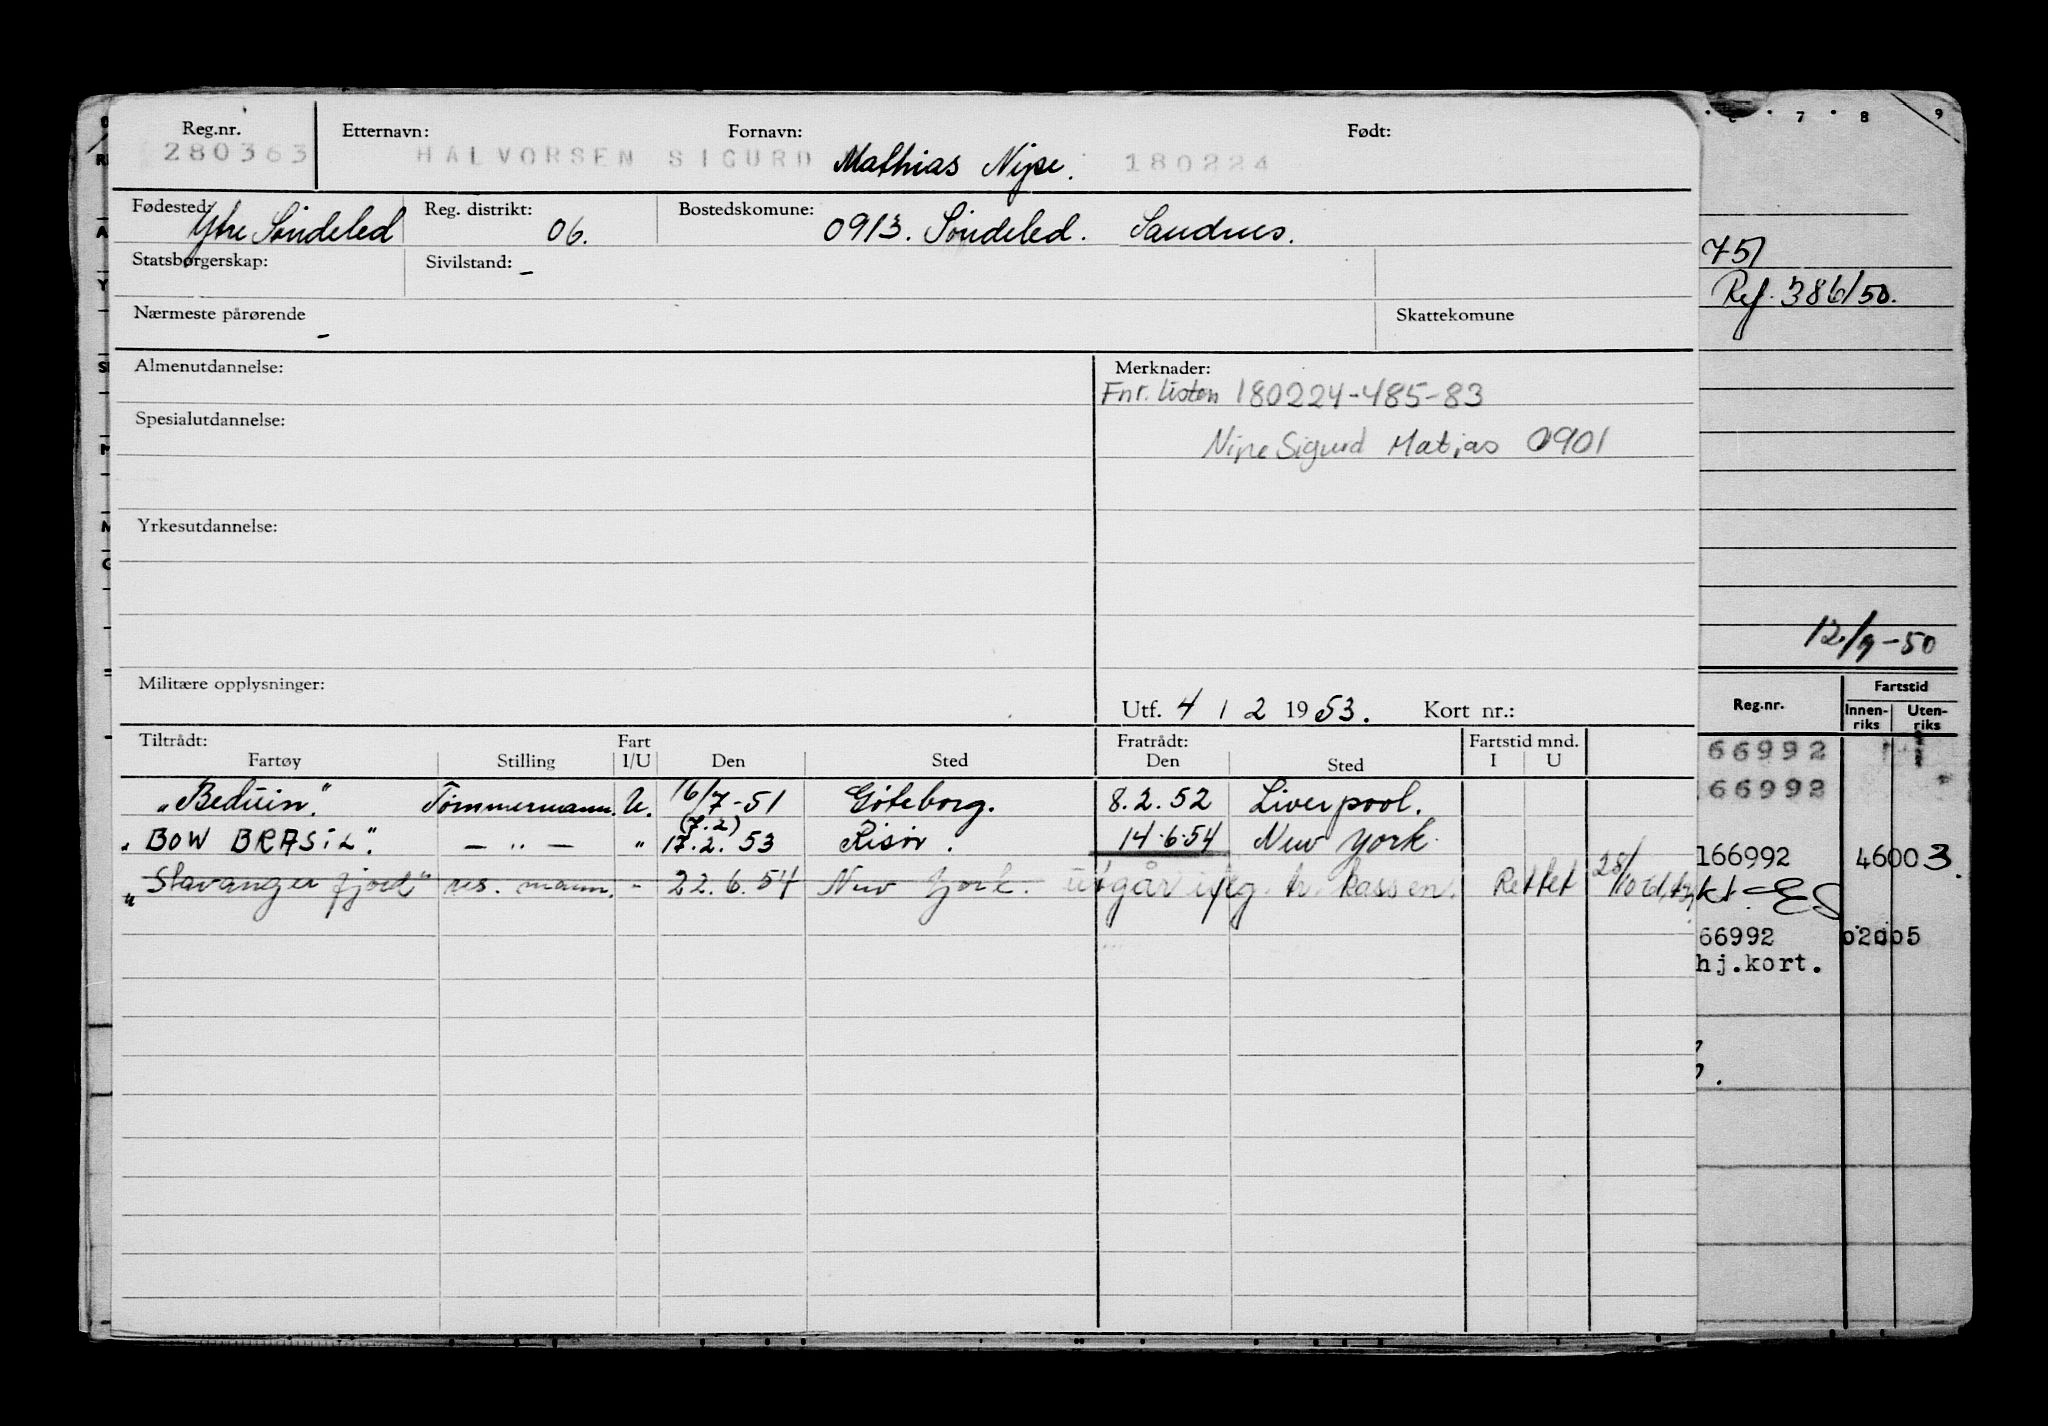 Reg.nr. Etternavn: Fornavn: Født:
280363 HALVORSEN SIGURD Mathias Nipe. 180224
Fødested: Ytre Søndeled Reg. distrikt: 06. Bostedskomune: 0913. Søndeled. Sandnes.
Statsborgerskap: Sivilstand: -
Nærmeste pårørende - Skattekomune
Almenutdannelse: Merknader:
Fnr. listen 180224-485-83
Spesialutdannelse:
Nipe Sigurd Matias 0901
Yrkesutdannelse:
Militære opplysninger: Utf. 4 / 2 1953. Kort nr.:
Tiltrådt: Fart Fratrådt: Fartstid mnd.
Fartøy Stilling I/U Den Sted Den Sted I U
"Beduin". Tømmermann. U. 16/7-51 Gøteborg. 8.2.52 Liverpool.
(7.2)
"BOW BRASIL". - " - " 17.2.53 Risør. 14.6.54 New York.
"Stavangerfjord" res. mann. - 22.6.54 New York. utgår iflg. tr. kassen. Rettet 28/10 61
7 8 9
751
Ref. 386/50.
12/9-50
Reg.nr. Fartstid
Innen-riks Uten-riks
66992
66992
166992 46003.
kt.
66992 02005
hj.kort.